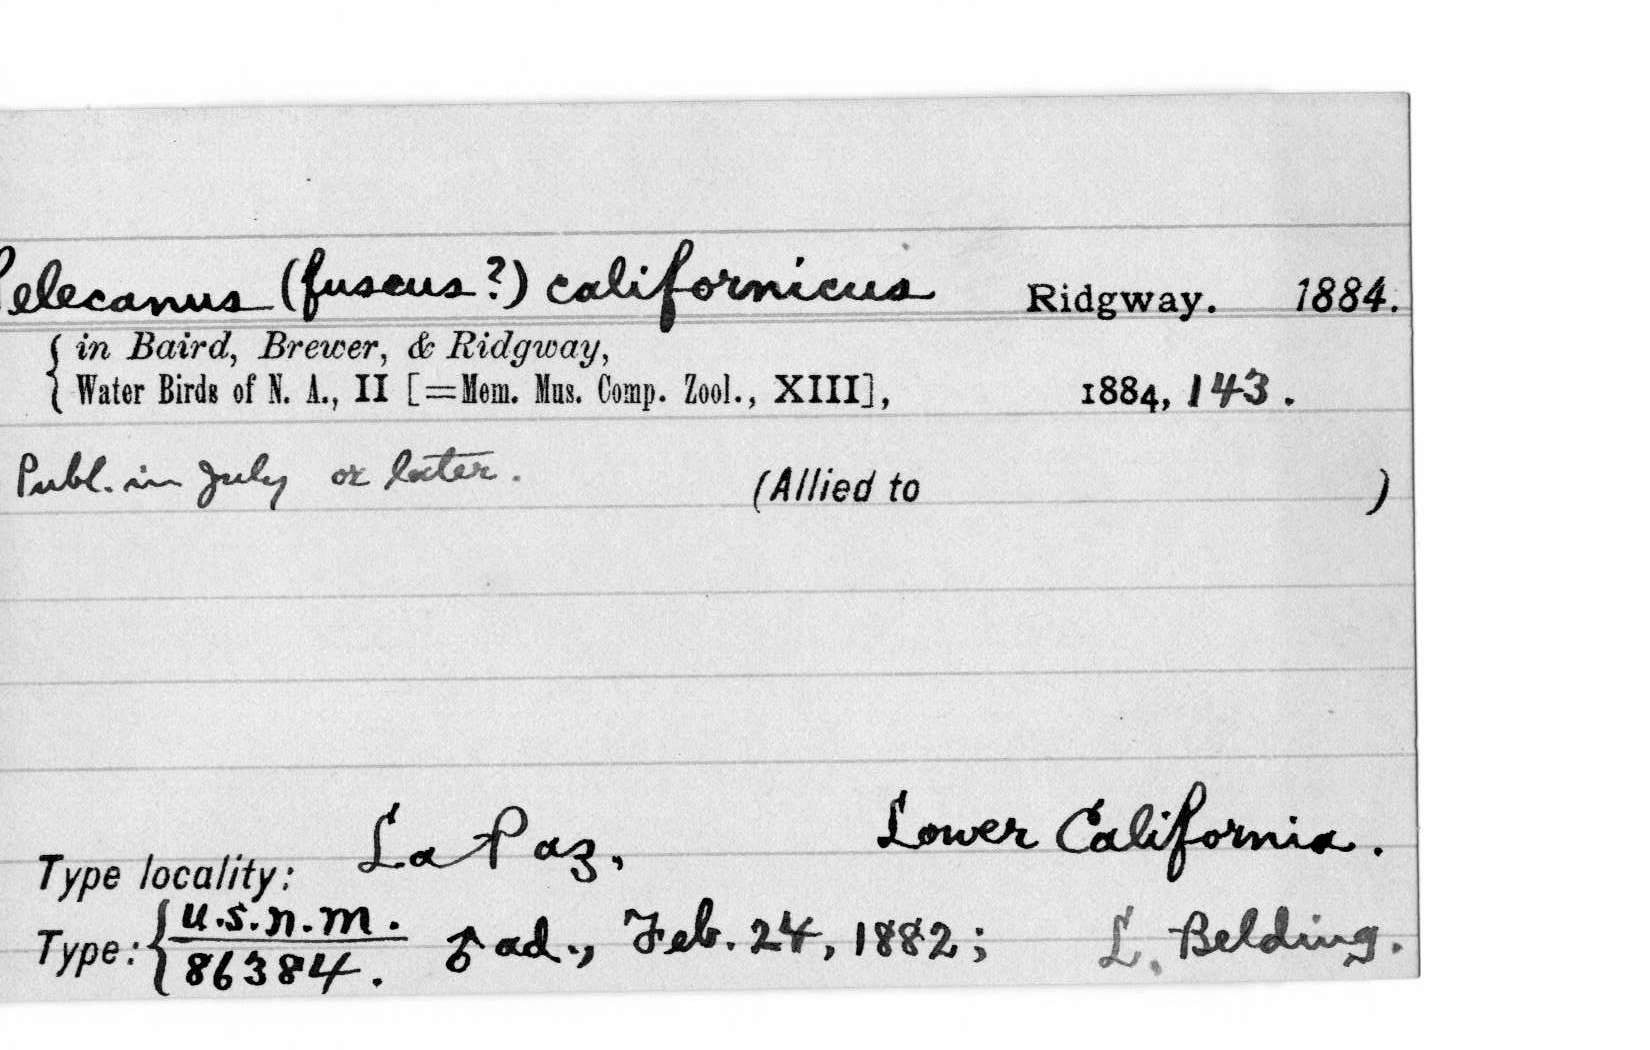 Pelecanus (fuscus?) californicus Ridgway. 1884.
in Baird, Brewer, & Ridgway,
Water Birds of N. A., II [=Mem. Mus. Comp. Zool., XIII], 1884, 143.
Publ. in July or later. (Allied to )
Type locality: La Paz, Lower California.
Type: { U.S.N.M. 86384. ♂ ad., Feb. 24, 1882; L. Belding.